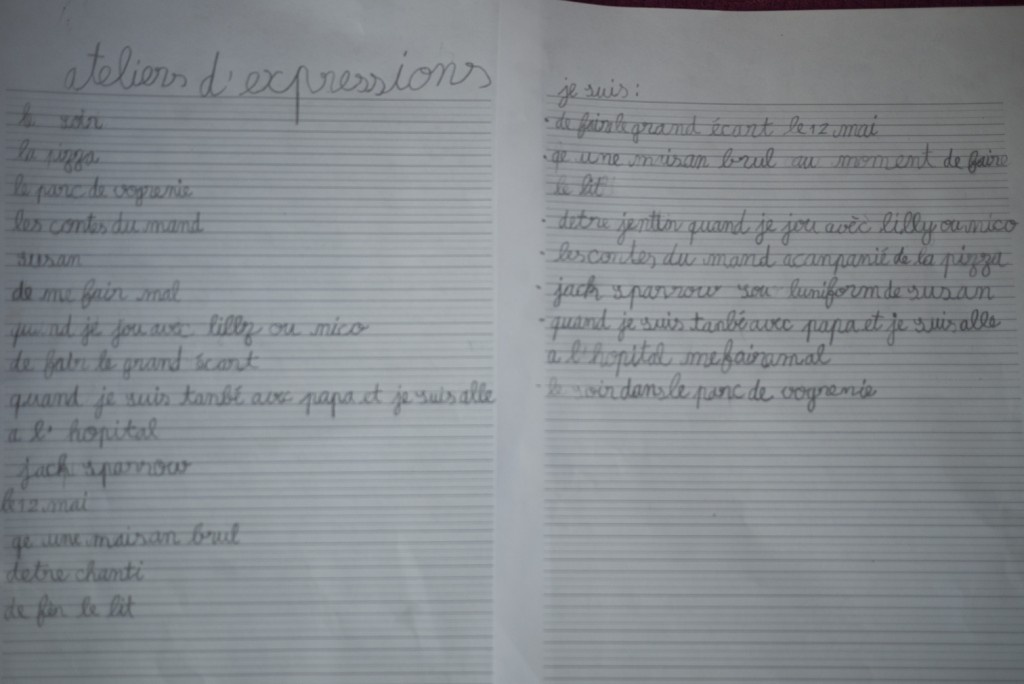 ateliers d'expressions
le soir
la pizza
le parc de vogrenie
les contes du mand
susan
de me fair mal
quand je jou avec lilly ou nico
de fair le grand écart
quand je suis tanbé avec papa et je suis alle
a l'hopital
jack sparrow
le 12 mai
qe une maisan brul
detre chanti
de fair le lit
je suis:
· de faire le grand écart le 12 mai
· qe une maisan brul au moment de faire
le lit
· detre quand je jou avèc lilly ou nico
· les contes du mand acanpanié de la pizza
· jack sparrow sou luniform de susan
· quand je suis tanbé avec papa et je suis alle
a l'hopital me faira mal
· le soir dans le parc de vogrenie